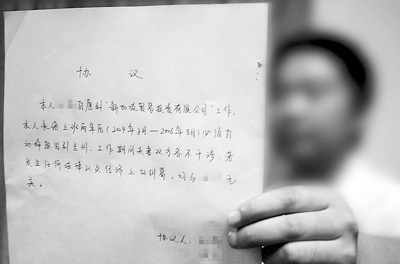 协 议
本人 自愿到“新加坡贸易投资有限公司”工作，
本人承诺上班两年后（2004年3月—2006年5月）必须自
动辞职回到兰州。工作期间夫妻双方各不干涉，若
发生任何法律以及经济上 纠葛，均与 无
关。
协议人